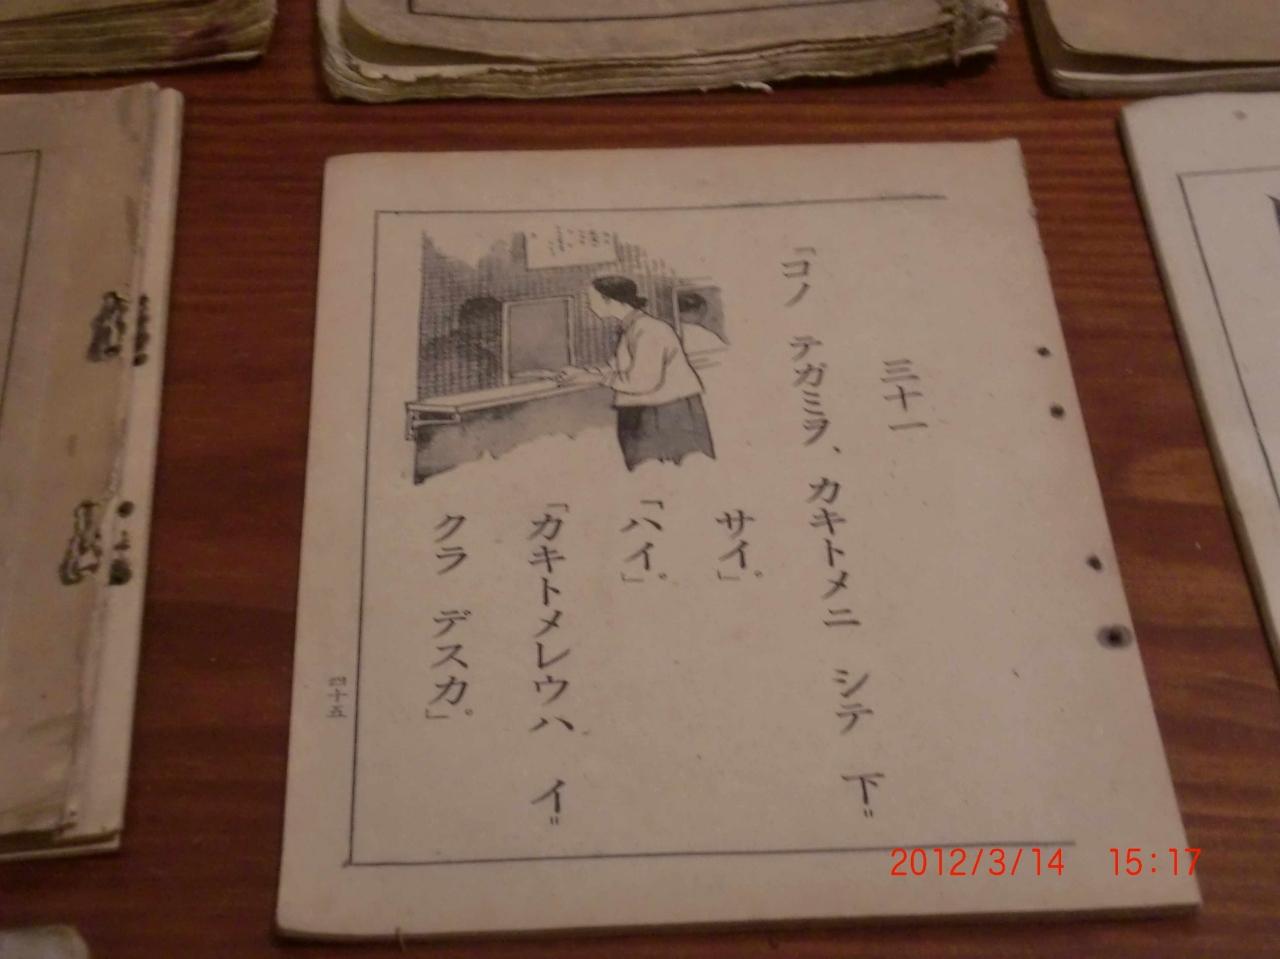 三十一
「コノ テガミヲ、カキトメニ シテ 下〟
サイ」。
「ハイ」。
「カキトメレウハ イ〟
クラ デスカ」。
四十五
2012/3/14 15:17